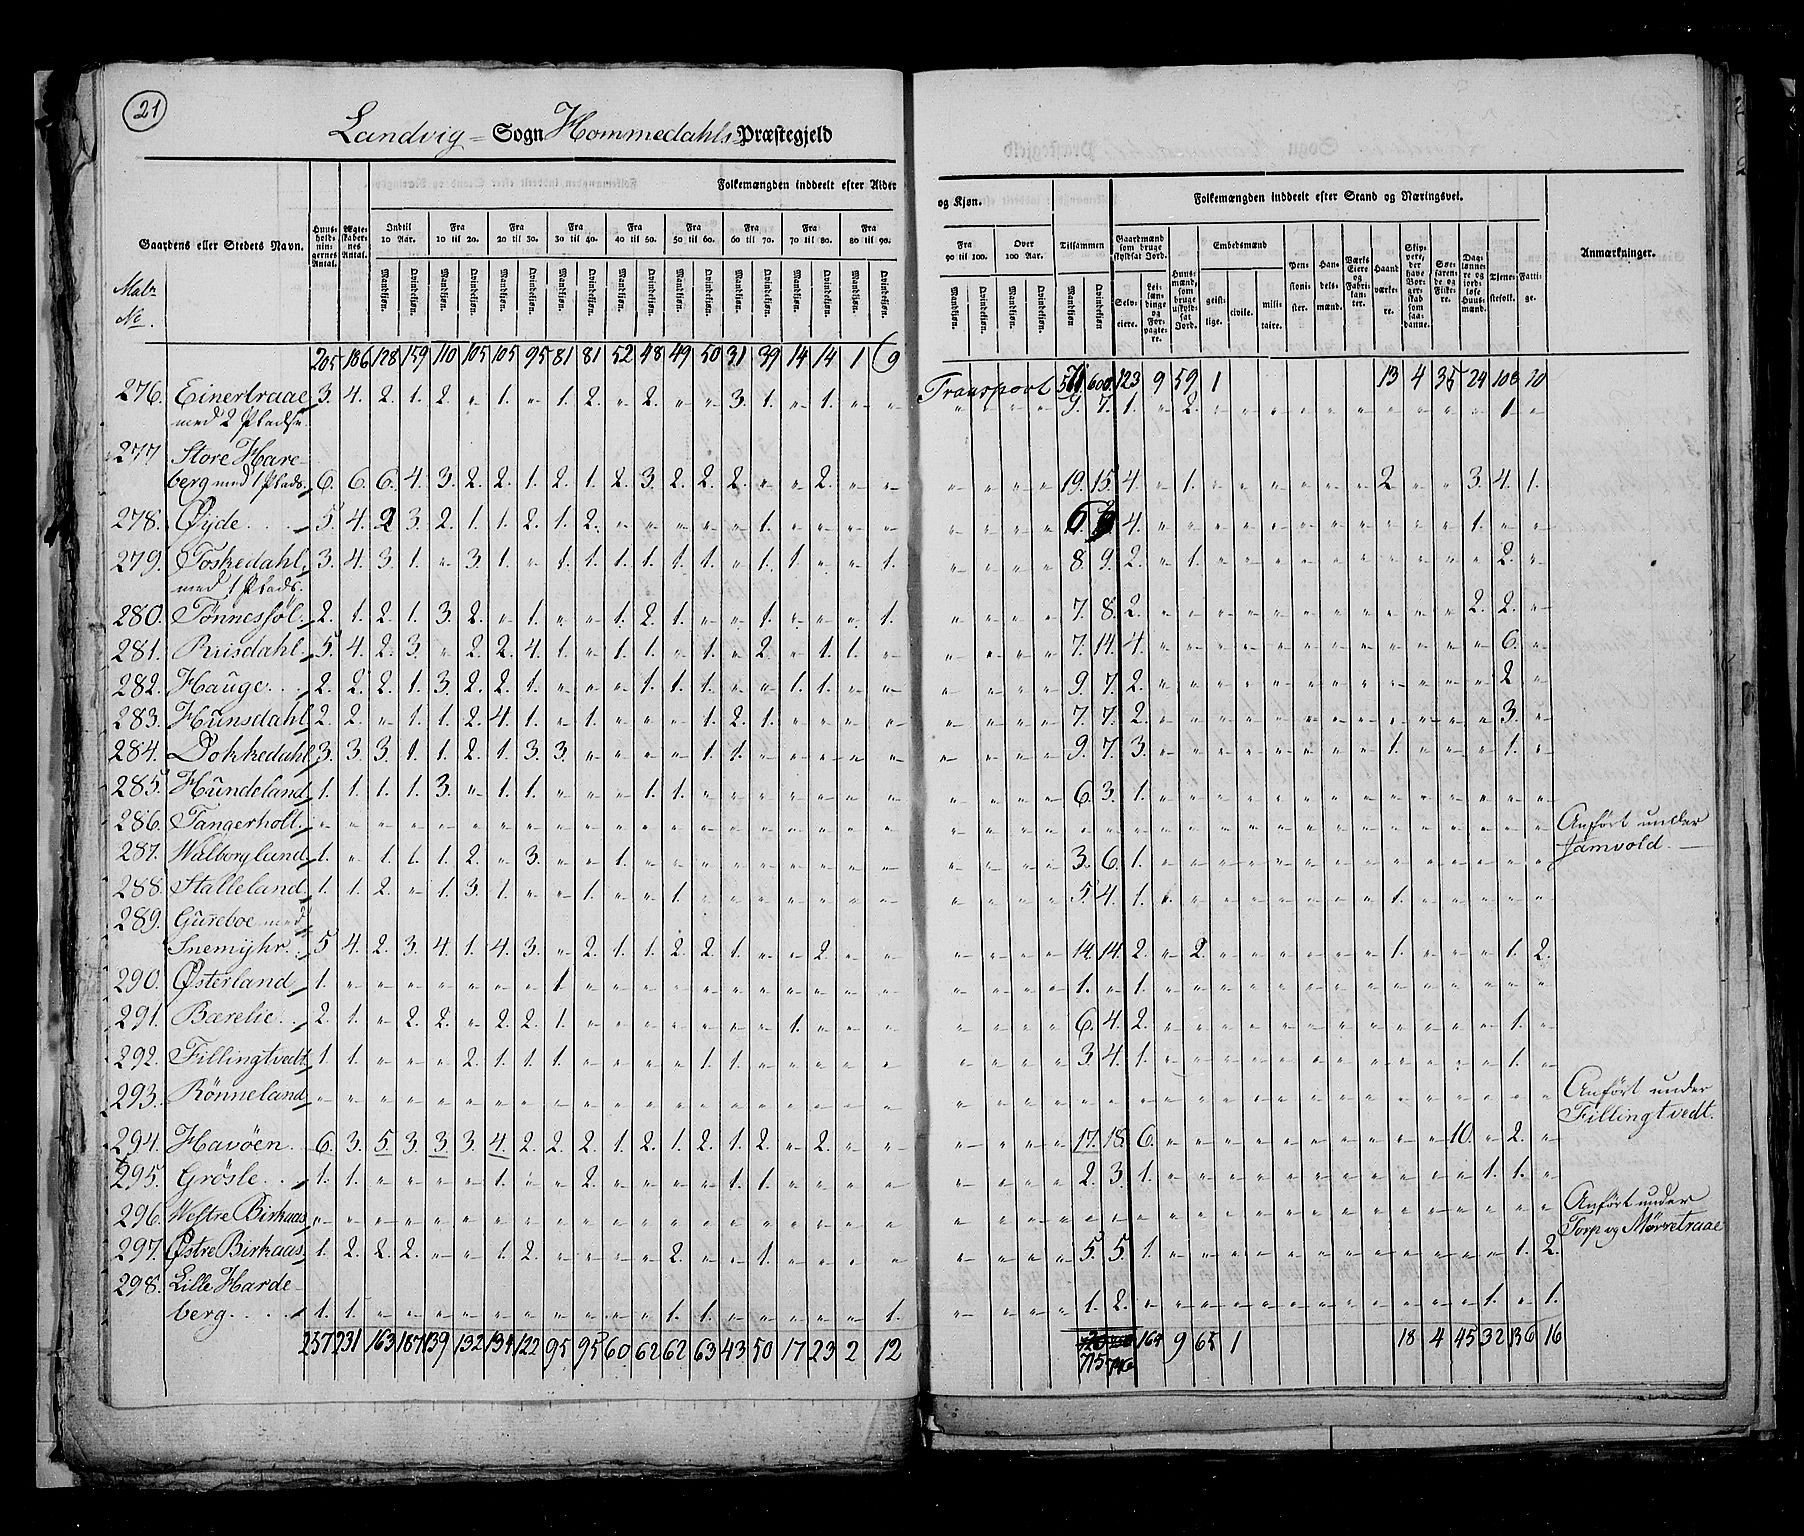 21
Landvig = Sogn Hommedahls Præstegjeld
Folkemængden inddeelt efter Alder
og Kjøn.
Folkemængden inddeelt efter Stand og Næringsvei.
Gaardens eller Stedets Navn.
Matr
No
Huusholdningernes Antal.
Ægteskabernes Antal.
Indtil 10 Aar.
Fra 10 til 20.
Fra 20 til 30.
Fra 30 til 40.
Fra 40 til 50.
Fra 50 til 60.
Fra 60 til 70.
Fra 70 til 80.
Fra 80 til 90.
Fra 90 til 100.
Over 100 Aar.
Tilsammen
Mandkjøn. Qvindekjøn.
Gaardmænd som bruge skyldsat Jord.
Selveiere.
Leilændinge og Forpagtere.
Huusmænd, som bruge uskyldsat Jord.
Embedsmænd
geistlige.
civile.
militaire.
Pensionister.
Handelsmænd.
Værkseiere og Fabrikanter.
Haandværkere.
Skippere, der have Borgerskab som saadanne.
Søefarende og Fiskere.
Daglønnere og jordløse Huusmænd.
Tjenestefolk.
Fattige.
Anmærkninger.
205 186 128 159 110 105 105 95 81 81 52 48 49 50 31 39 14 14 1 9
Transport 600 123 9 59 1 13 4 35 24 108 10
276. Einertraae 3. 4. 2. 1. 2. " 1. " 1. 2. " 2. " " 3. 1. " 1. " " 9. 7. 1. " 2. 1. "
med 2 Pladse.
277 Store Hare-
berg med 1 Plads. 6. 6. 6. 4. 3. 2. 2. 1. 2. 1. 2. 3. 2. 2. 2. " " 2. " " 19. 15. 4. " 1. 2. 3. 4. 1.
278. Øyde. 5. 4. 2 3. 2. 1. 1. 2. 1. 2. " " " " " 1. " " " " 6 9 4. 1. " "
279. Toskedahl, 3. 4. 3. 1. " 3. 1. " 1. 1. 1. 1. 1. 1. " 1. 1. " " 1. 8. 9. 2. " 1. 2. "
med 1 Plads.
280. Tønnessøl. 2. 1. 2. 1. 3. 2. " 1. " " 1. 2. 1. " " 1. " " " 1. 7. 8. 2. 2. 2. "
281. Rusdahl. 5. 4. 2. 3. " 2. 2. 4. 1. " 1. 1. " 1. " 2. " 1. 1. " 7. 14. 4. 6. "
282. Hauge. 2. 2. 2. 1. 3. 2. 2. 1. " " " 1. 1. 1. " " 1. 1. " " 9. 7. 2. 2 "
283. Hunsdahl 2. 2. " 1. 1. 2. 4. 1. " 1. " " " 1. 2. 1. " " " " 7. 7. 2. 3. "
284. Dokkedahl 3. 3. 3. 1. 1. 2. 1. 3. 3. " " " " 1. 1. " " " " " 9. 7. 3. 1. 1. "
285. Hundeland 1. 1. 1. 1. 3. " 1. 1. " " " 1. 1. " " " " " " " 6. 3. 1.
286. Tangerholt. " " " " " " " " " " " " " " " " " " " " Anført under
287. Walborglund 1. " 1. 1. 1. 2. " 3. " " 1. " " " " " " " " " 3. 6. 1. Jamvold.
288. Stalleland 1. 1. 2. " 1. 3. 1. " " 1. " " 1. " " " " " " " 5. 4. 1. 1.
289. Guseboe med
Snemyhr. 5. 4. 2. 3. 4. 1. 4. 3. " 2. 1. 1. 2. 2. 1. " " 2. " " 14. 14. 2. " 2. 1. 1. 2.
290. Østerland 1. " " " " " " " 1 " " " " " " " " " " " 1. " 1.
291. Bærelie. 2. 1. " 2. 2. " 2. 2. 1. " " " " " " " 1. " " " 6. 4. 2. 1. "
292. Fillingtvedt 1. 1. " " " 2. 1. 1. 1. " " " " 1. 1. " " " " " 3. 4. 1. 1. "
293. Rönneland " " " " " " " " " " " " " " " " " " " " Anført under
Fillingtvedt.
294. Havöen. 6. 3. 5. 3. 3. 3. 4. 2. 2. 2. 1. 2. 1. 2. 1. 2. " 2. " " 17. 18. 6. 10. " 2. "
295. Grösle. 1. 1. " " " " 1. " " 2. " " " " 1. 1. " " " " 2. 3. 1. 1. 1. "
296. Westre Birkaas " " " " " " " " " " " " " " " " " " " " Anført under
Torp og Mørretraae
297. Østre Birkaas 1. 2. 2. 2. " " 1. 2. " " " " 2. " " 1. " " " " 5. 5. 1. 1. 2.
298. Lille Harde-
berg. 1. 1. " " " " " " " " " " 1. 1. " " " " " 1. 1. 2. 1. " 1.
257 231 163 187 139 132 134 122 95 95 60 62 62 63 43 50 17 23 2 12 164 9 65 1 18 4 45 32 136 16
715 746